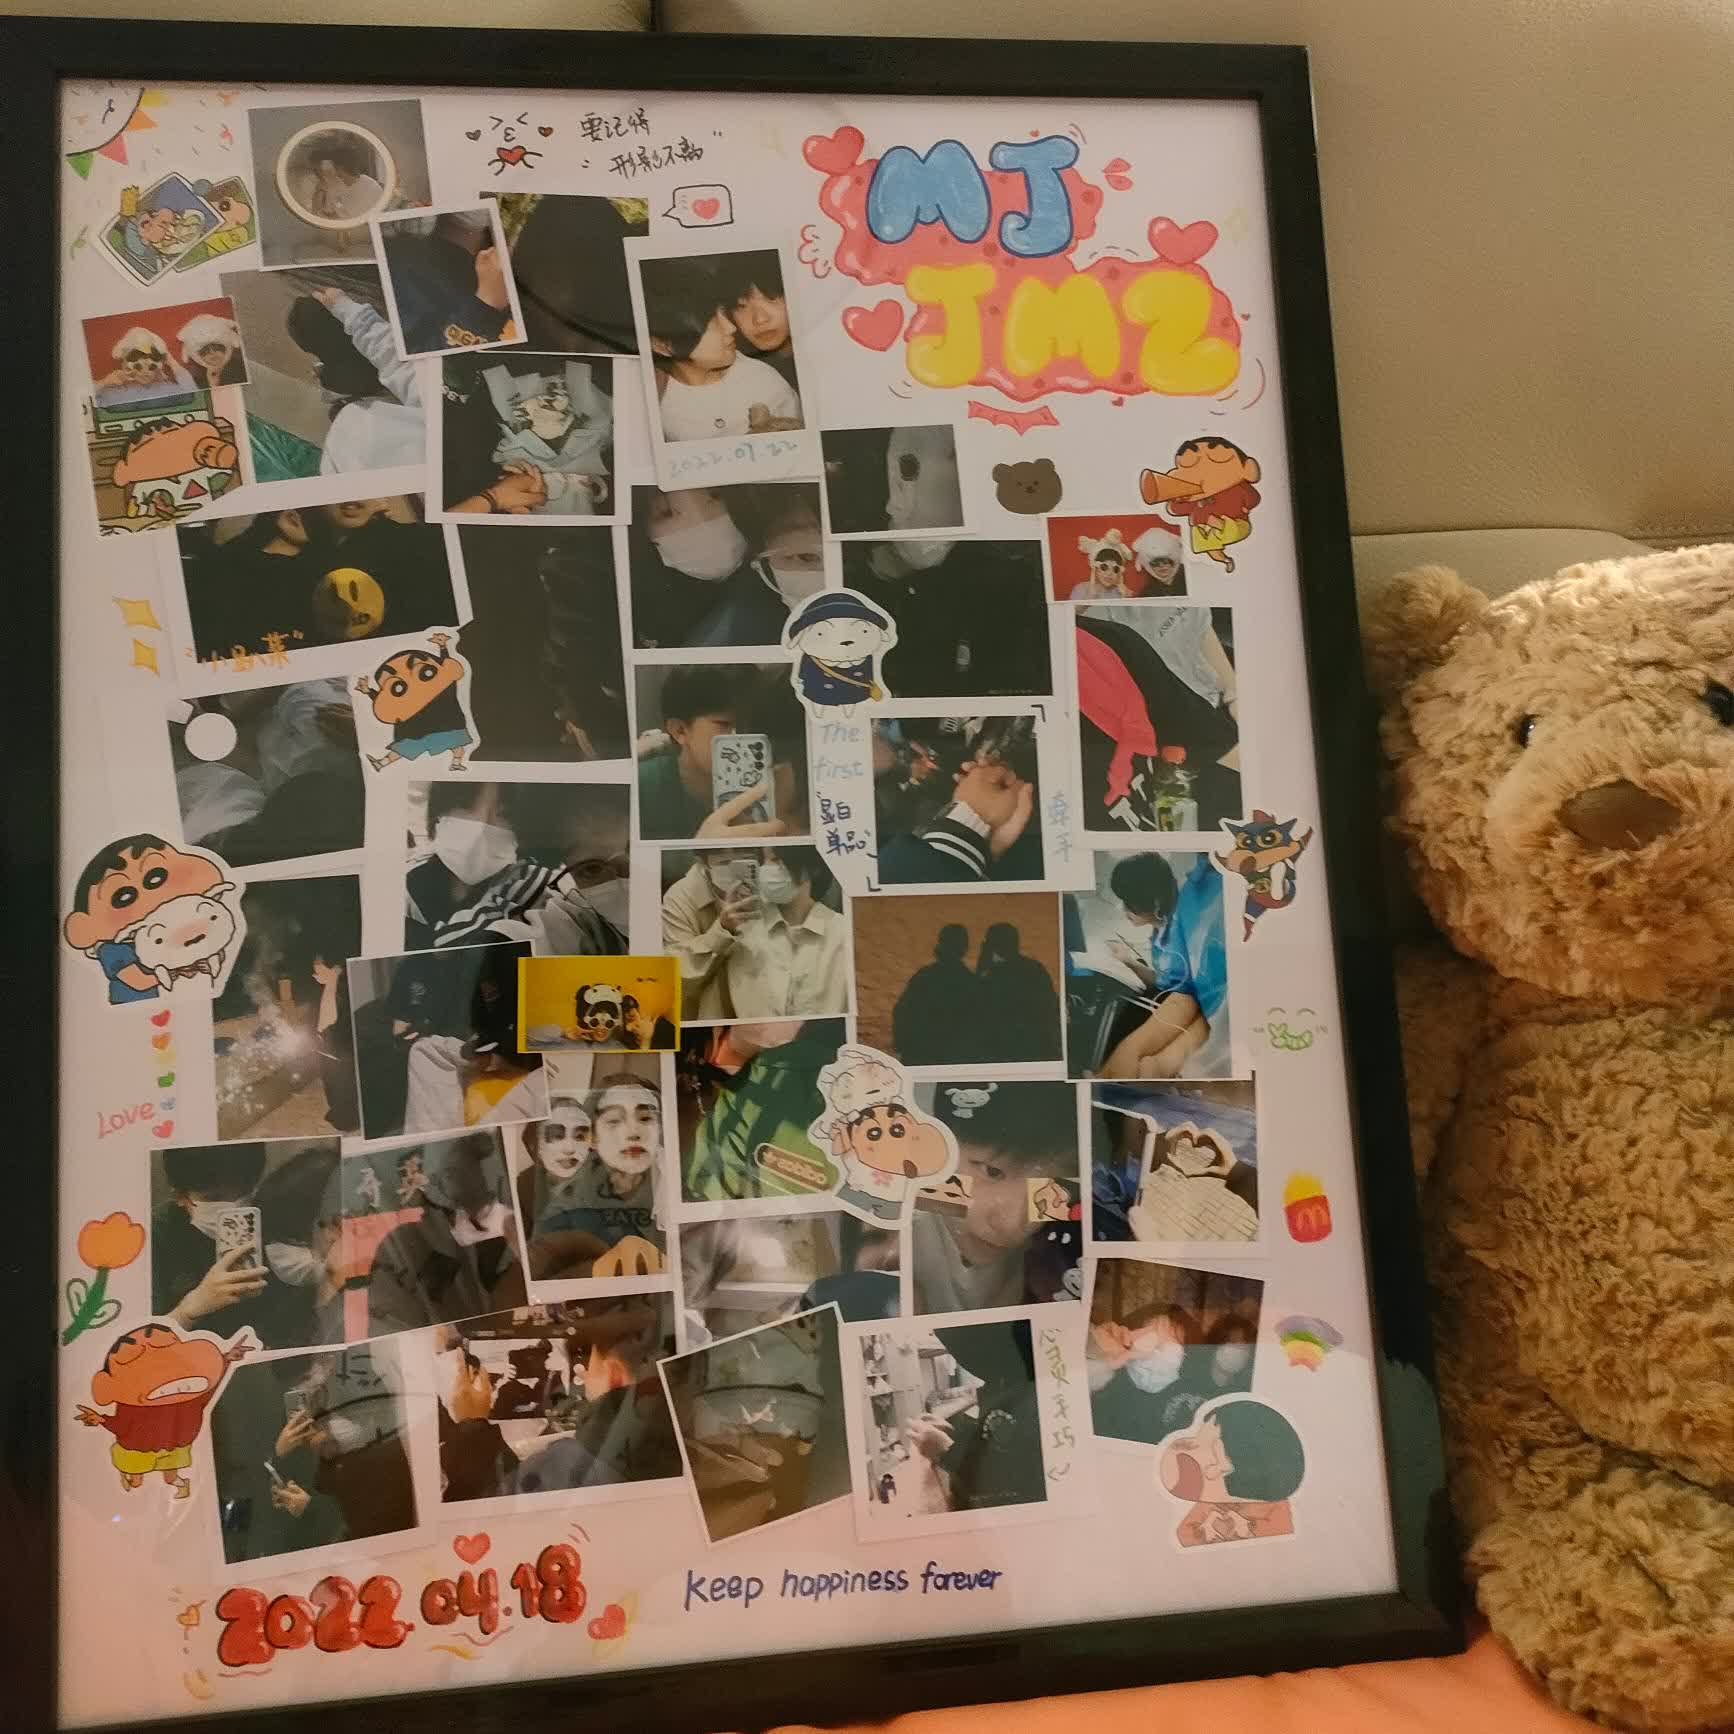 要记得
:形影不离"
MJ
JMZ
2022.07.22
The
first
显白
单品
牵手
Love
心灵手巧
2022.04.18
keep happiness forever